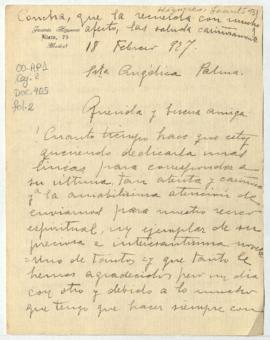 Combra, que la recuerda con mucho
afecto, las saluda cariñosamente
Jacinto Higueras
Madrid
18 Febrero 927.
CO-AP1
Caj. 2
Doc. 405
Fol. 2
Srta Angélica Palma.
Querida y buena amiga
Cuanto tiempo hace que estoy
queriendo dedicarla unas
lineas para corresponder a
su ultima, tan atenta y cariñosa
y a la amabilisima atención de
enviarnos para nuestro recreo
espiritual, un ejemplar de su
preciosa e interesantisima novela
Uno de tantos y que tanto le
hemos agradecido; pero un dia
con otro y debido a lo mucho
que tengo que hacer siempre con